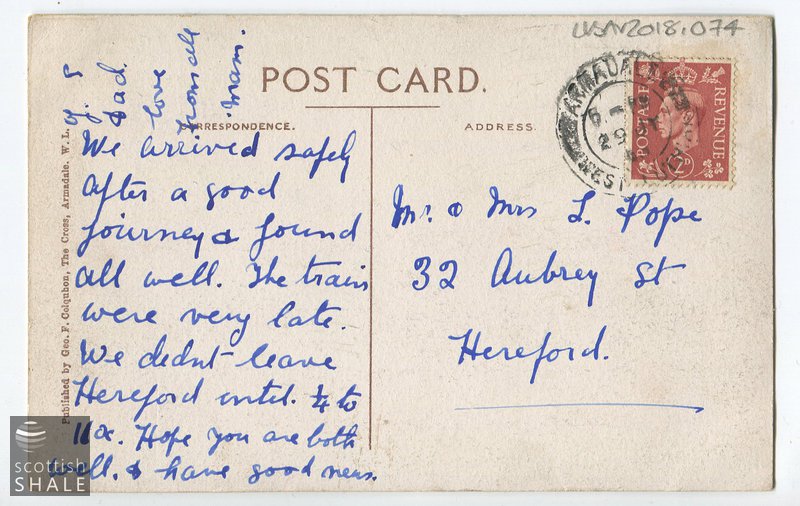 LVSAV2018.074
POST CARD.
CORRESPONDENCE.
ADDRESS.
We arrived safely
after a good
journey & found
all well. The trains
were very late.
We didnt leave
Hereford until ¼ to
11 Hope you are both
well. & have good news.
love
from all
Mam.
Dad.
Mr. & Mrs L. Pope
32 Aubrey St
Hereford.
ARMADALE
WEST
29
POSTAGE
REVENUE
Published by Geo. F. Colquhon, The Cross, Armadale. W.L.
scottish
SHALE